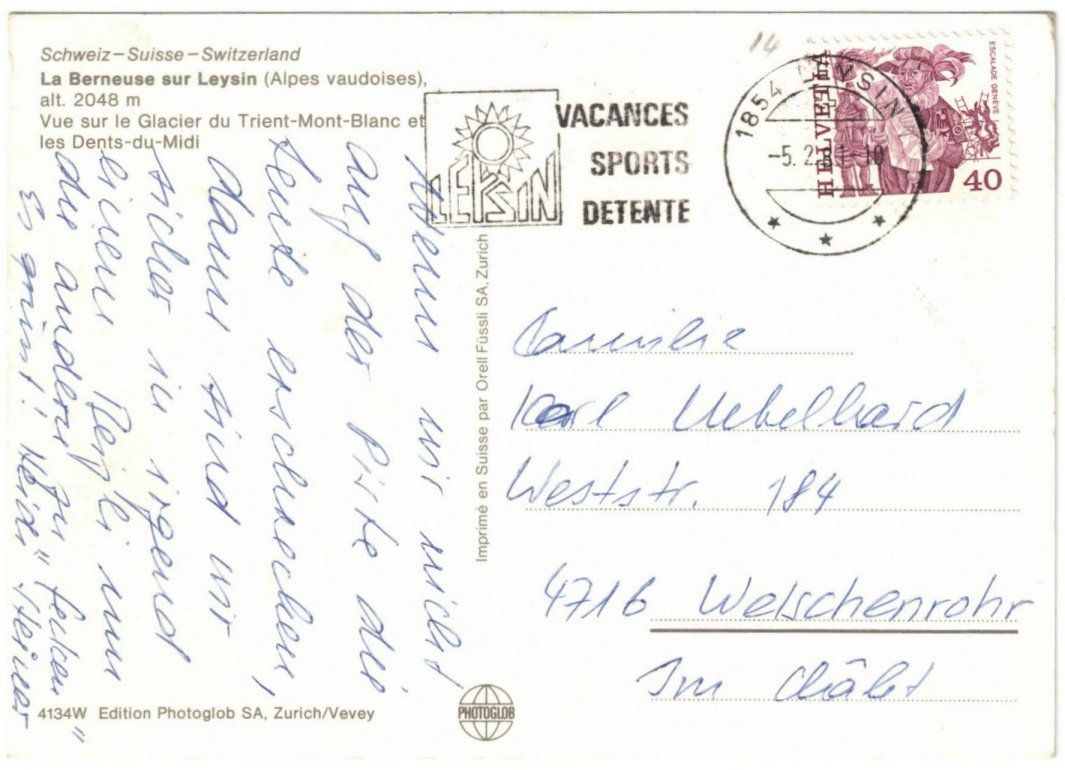 Schweiz–Suisse–Switzerland
La Berneuse sur Leysin (Alpes vaudoises),
alt. 2048 m
Vue sur le Glacier du Trient-Mont-Blanc et
les Dents-du-Midi
Wenn wir nicht
auf der Piste die
Leute erschrecken,
dann sind wir
sicher in irgend
einem Beizli um
die andern zu
Es grüsst! Heidi Heiner
4134W Edition Photoglob SA, Zurich/Vevey
PHOTOGLOB
Imprimé en Suisse par Orell Füssli SA, Zurich
LEYSIN
VACANCES
SPORTS
DETENTE
14
1854 LEYSIN
-5.2.81-10
HELVETIA
ESCALADE GENÈVE
40
Familie
Karl Uebelhard
Weststr. 184
4716 Welschenrohr
Im Châlet